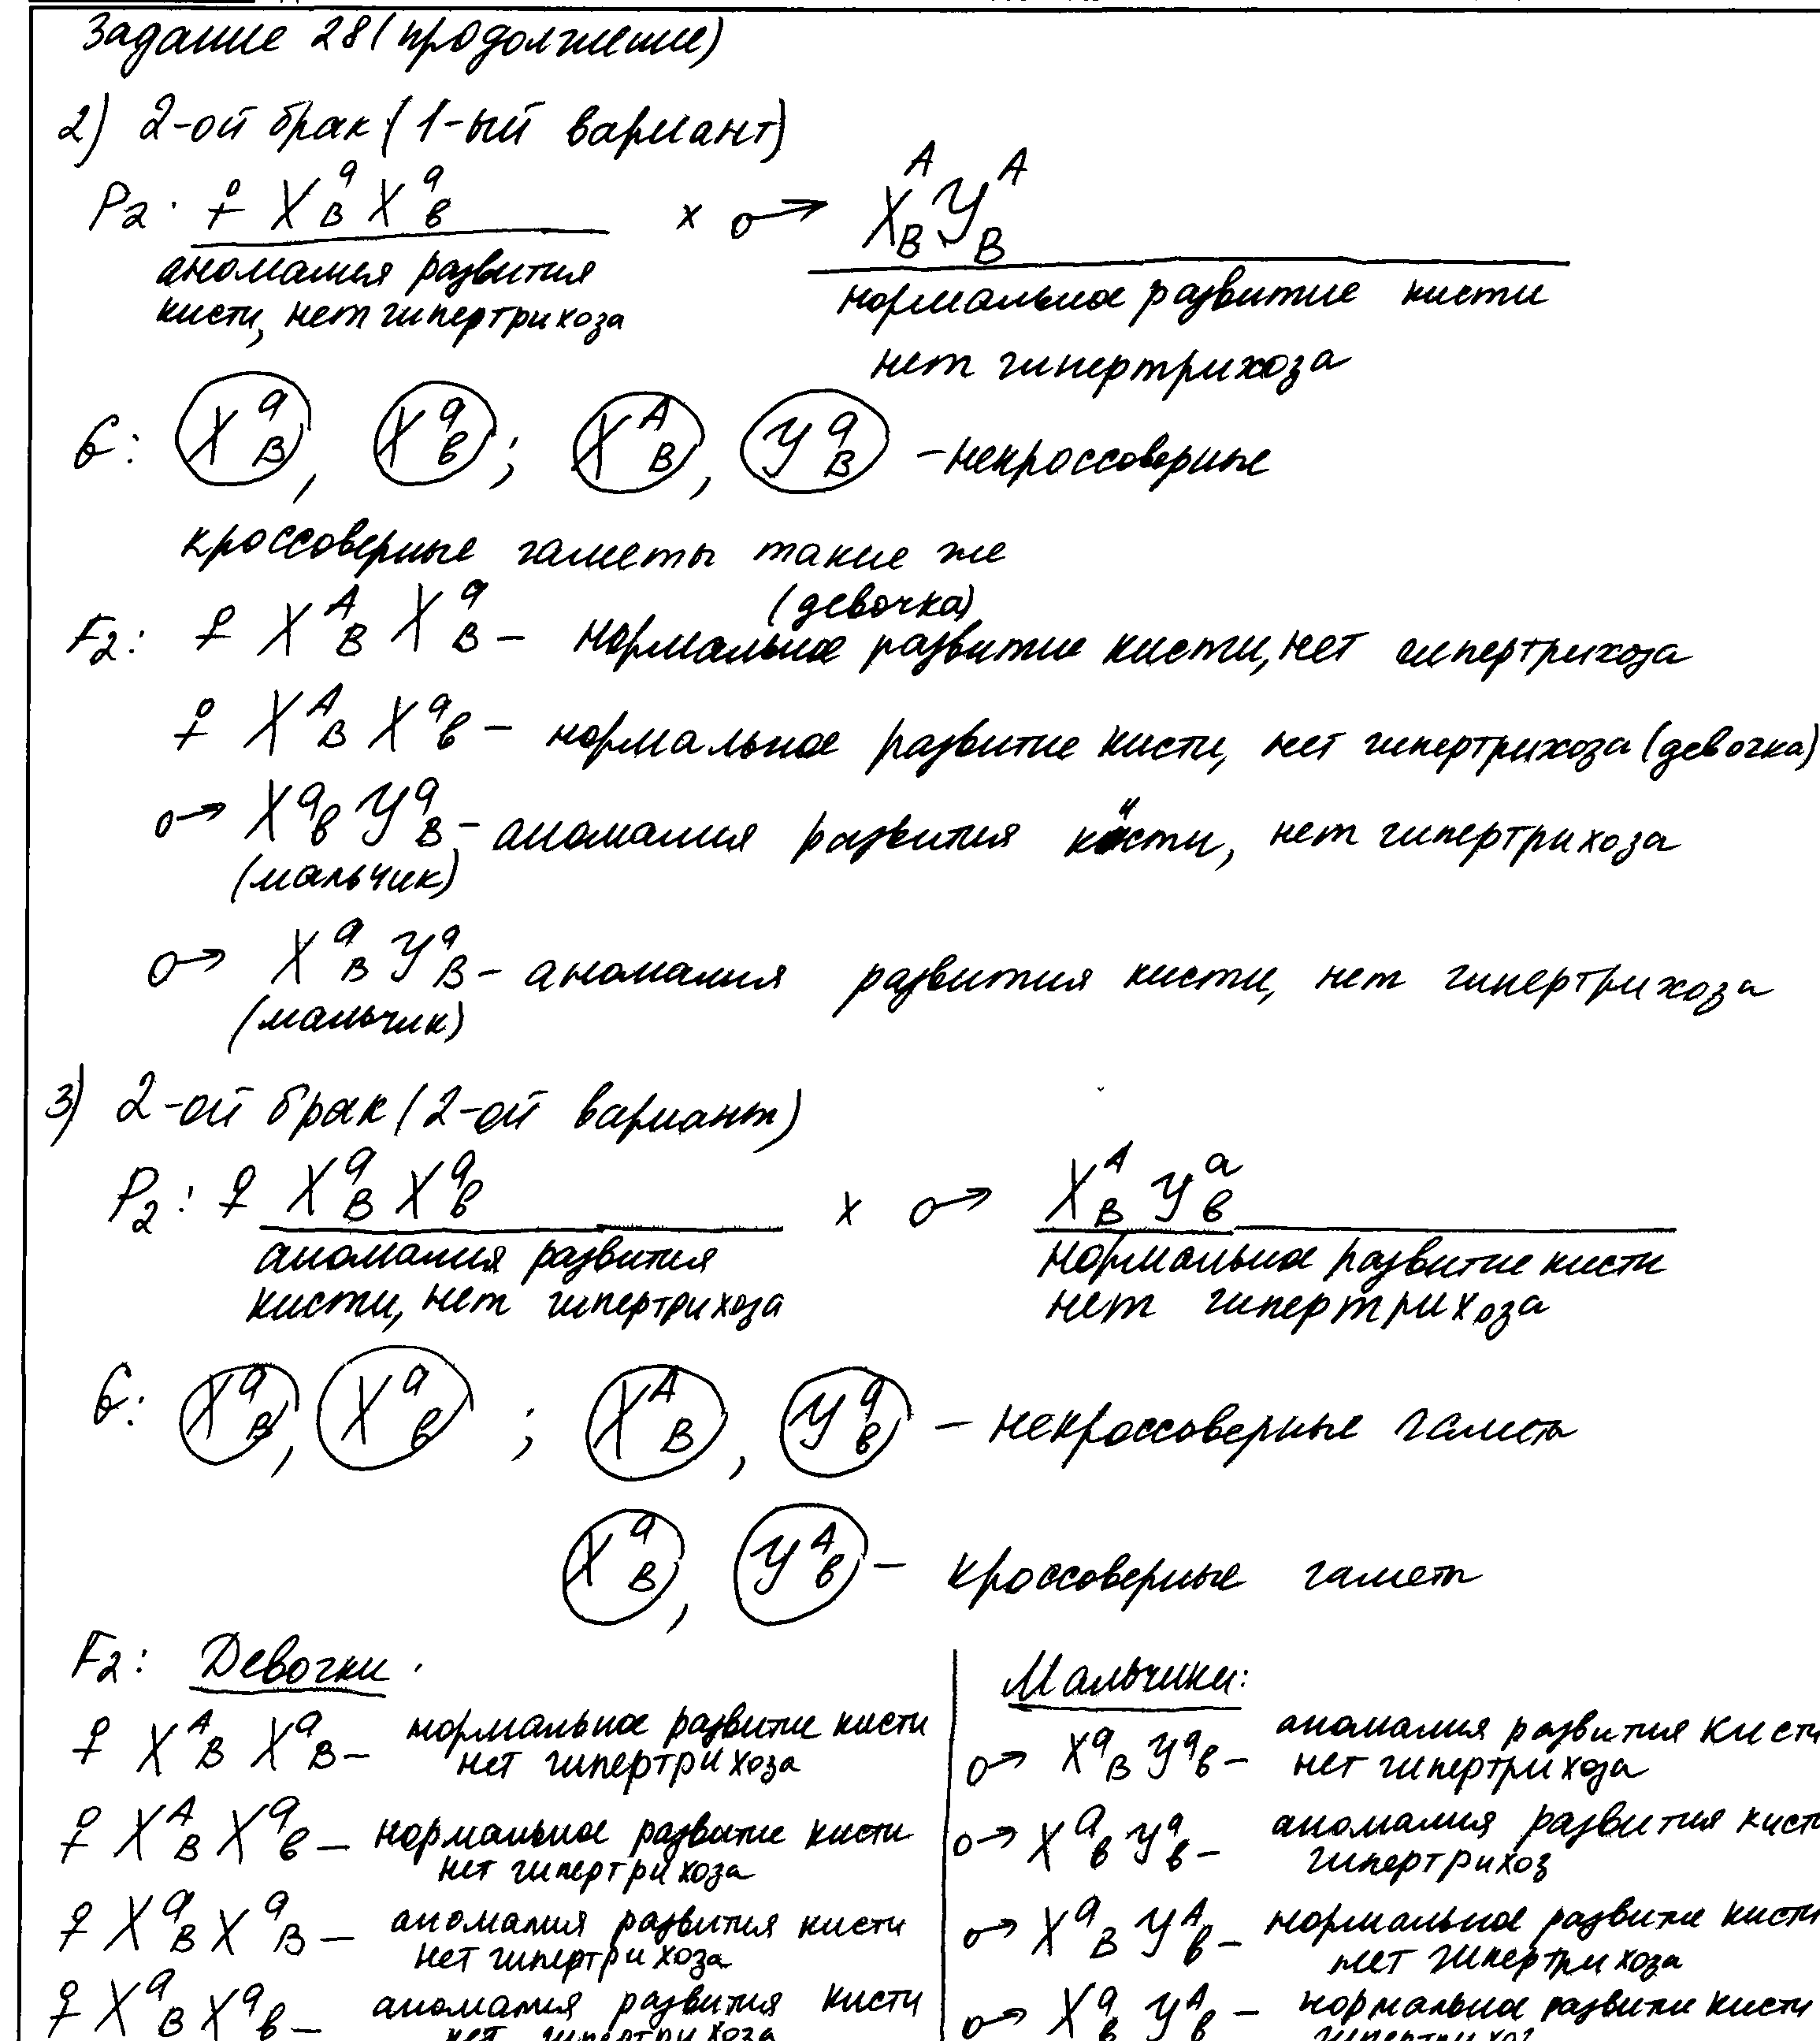 Задание 28 (продолжение)
2) 2-ой брак (1-ый вариант)
P₂: ♀ X^a_B X^a_в × ♂ X^A_B У^A_B
аномалия развития кисти, нет гипертрихоза
нормальное развитие кисти
нет гипертрихоза
G: X^a_B, X^a_в; X^A_B, У^a_B – некроссоверные
кроссоверные гаметы такие же
F₂: ♀ X^A_B X^a_B – нормальное (девочка) развитие кисти, нет гипертрихоза
♀ X^A_B X^a_в – нормальное развитие кисти, нет гипертрихоза (девочка)
♂ X^a_в У^a_B – аномалия развития кисти, нет гипертрихоза
(мальчик)
♂ X^a_B У^a_B – аномалия развития кисти, нет гипертрихоза
(мальчик)
3) 2-ой брак (2-ой вариант)
P₂: ♀ X^a_B X^a_в × ♂ X^A_B У^a_в
аномалия развития
кисти, нет гипертрихоза
нормальное развитие кисти
нет гипертрихоза
G: X^a_B, X^a_в; X^A_B, У^a_в – некроссоверные гаметы
X^a_B, У^A_в – кроссоверные гаметы
F₂: Девочки:
♀ X^A_B X^a_B – нормальное развитие кисти
нет гипертрихоза
♀ X^A_B X^a_в – нормальное развитие кисти
нет гипертрихоза
♀ X^a_B X^a_B – аномалия развития кисти
нет гипертрихоза
♀ X^a_B X^a_в – аномалия развития кисти
нет гипертрихоза
Мальчики:
♂ X^a_B У^a_в – аномалия развития кисти
нет гипертрихоза
♂ X^a_в У^a_в – аномалия развития кисти
гипертрихоз
♂ X^a_B У^A_в – нормальное развитие кисти
нет гипертрихоза
♂ X^a_в У^A_в – нормальное развитие кисти
гипертрихоз